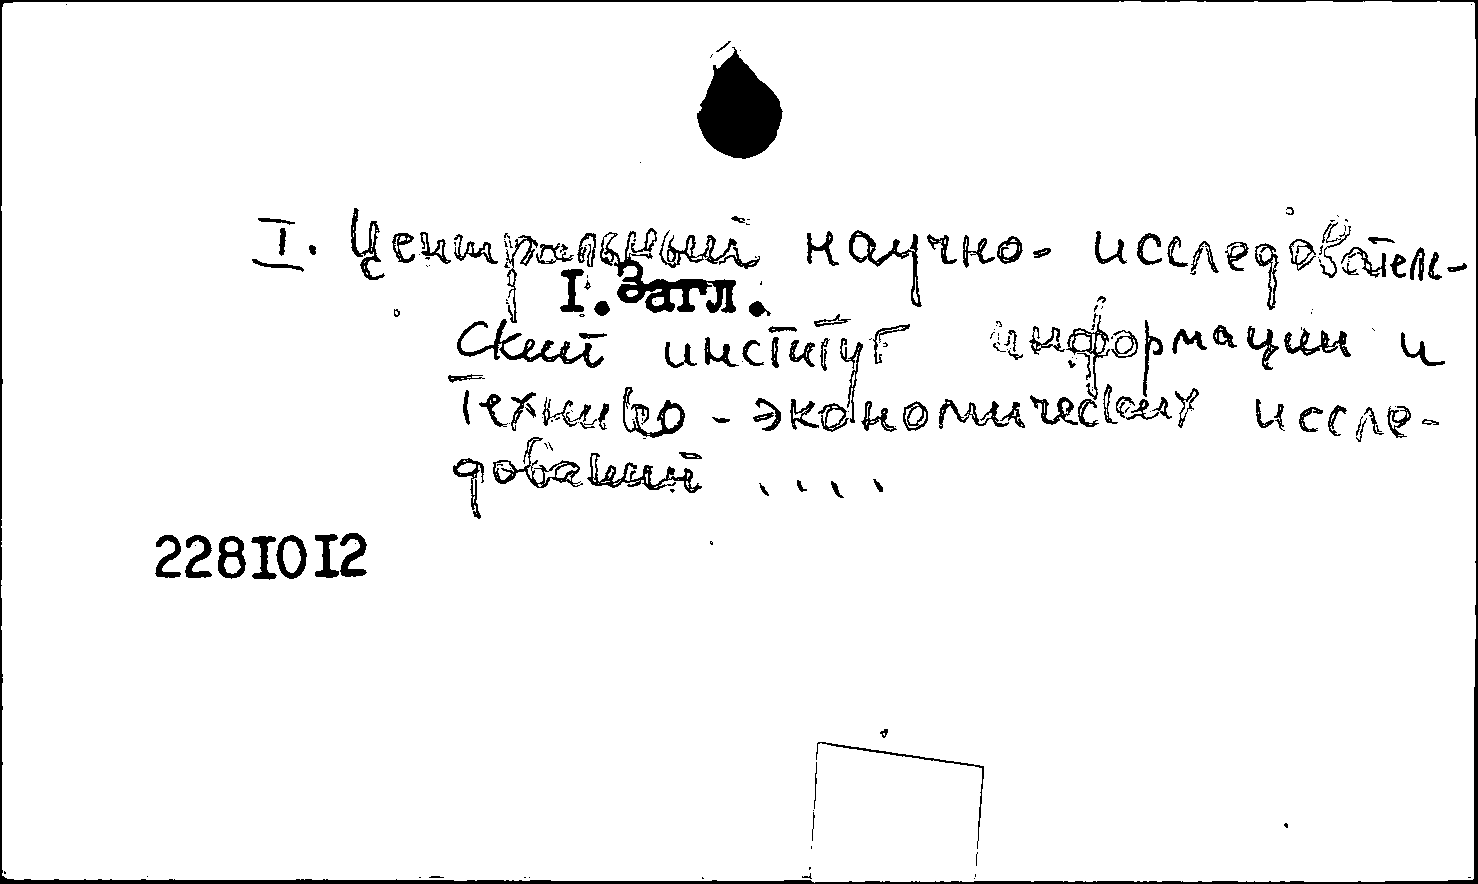 I. Центральный научно-исследователь-
I. Загл.
ский институт информации и
технико-экономических иссле-
дований ....
2281012